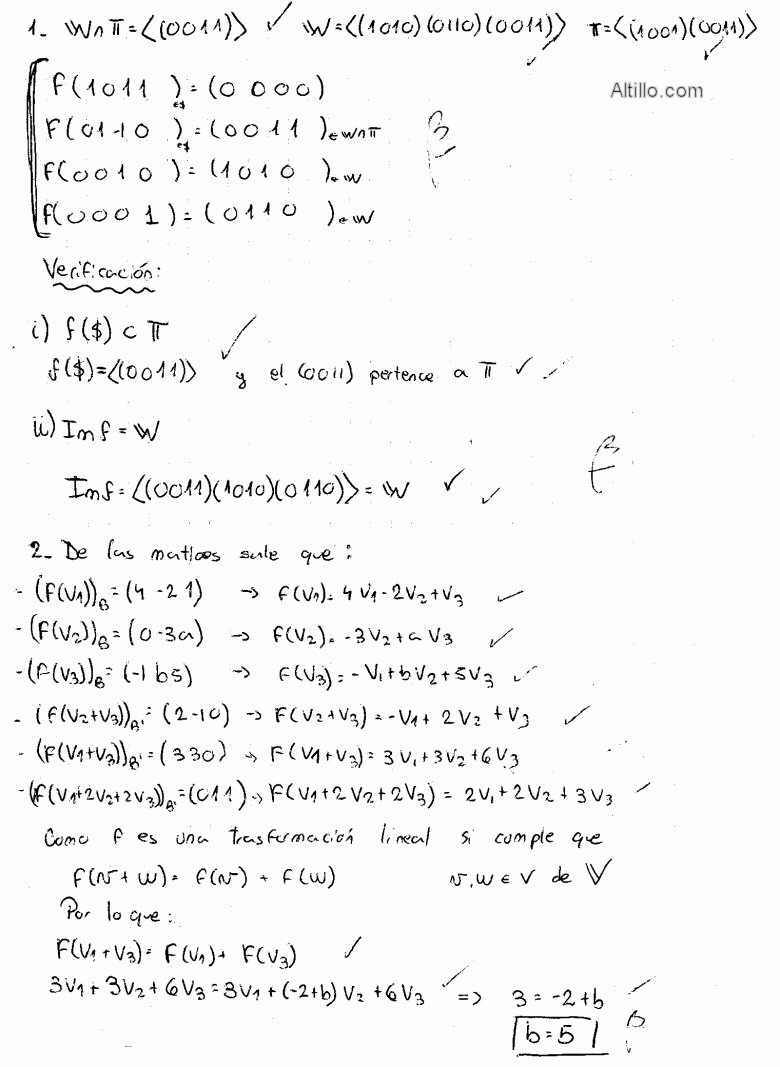 1- W∩π=⟨(0011)⟩ ✓ W=⟨(1010)(0110)(0011)⟩ π=⟨(1001)(0011)⟩
Altillo.com
f(1011)=(0000)
f(01-10)=(0011)∈W∩π
f(0010)=(1010)∈W
f(0001)=(0110)∈W
B
Verificación:
i) f($) ⊂ π ✓
f($)=⟨(0011)⟩ y el (0011) pertence a π ✓
ii) Im f = W
Im f=⟨(0011)(1010)(0110)⟩=W ✓ ✓
B
2- De las salе que:
- (f(V1))B=(4 -2 1) → f(V1)=4V1-2V2+V3 ✓
- (f(V2))B=(0 -3 a) → f(V2)=-3V2+aV3 ✓
- (f(V3))B=(-1 b 5) → f(V3)=-V1+bV2+5V3 ✓
- (f(V2+V3))B'=(2 -1 0) → f(V2+V3)=-V1+2V2+V3 ✓
- (f(V1+V3))B'=(3 3 0) → f(V1+V3)=3V1+3V2+6V3
- (f(V1+2V2+2V3))B'=(0 1 1) → f(V1+2V2+2V3)=2V1+2V2+3V3 ✓
Como f es una trasformación lineal si cumple que
f(v+w)=f(v)+f(w) v,w ∈ V de V
Por lo que:
f(V1+V3)=f(V1)+f(V3) ✓
3V1+3V2+6V3=3V1+(-2+b)V2+6V3 ✓ ⇒ 3=-2+b ✓
b=5 B